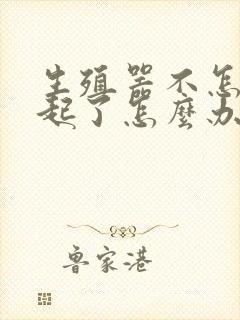 生殖器不怎
起了怎麼办
鲁家港